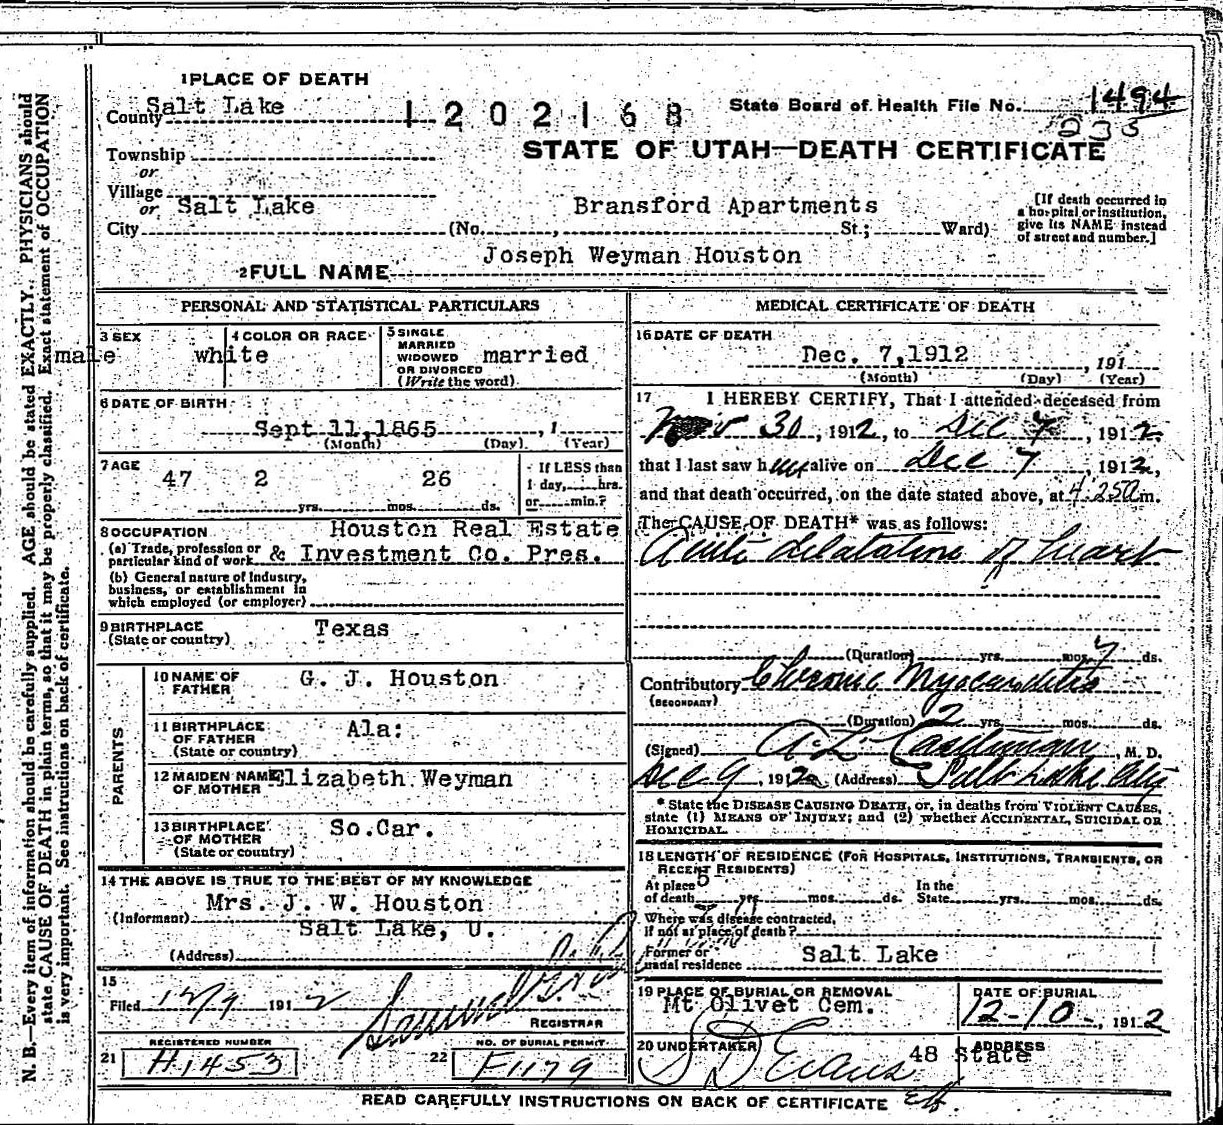 1 PLACE OF DEATH
County Salt Lake
1202168
State Board of Health File No. 1494
235
Township
or
Village
or Salt Lake
City
STATE OF UTAH—DEATH CERTIFICATE
Bransford Apartments
(No. , St.; Ward)
[If death occurred in
a hospital or institution,
give its NAME instead
of street and number.]
2 FULL NAME Joseph Weyman Houston
PERSONAL AND STATISTICAL PARTICULARS
3 SEX
male
4 COLOR OR RACE
white
5 SINGLE
MARRIED
WIDOWED
OR DIVORCED
(Write the word)
married
6 DATE OF BIRTH
Sept 11,1865 , 1
(Month) (Day) (Year)
7 AGE
47 2 26
yrs. mos. ds.
If LESS than
1 day, hrs.
or min.?
8 OCCUPATION
(a) Trade, profession or
particular kind of work
Houston Real Estate
& Investment Co. Pres.
(b) General nature of industry,
business, or establishment in
which employed (or employer)
9 BIRTHPLACE
(State or country)
Texas
PARENTS
10 NAME OF
FATHER
G. J. Houston
11 BIRTHPLACE
OF FATHER
(State or country)
Ala:
12 MAIDEN NAME
OF MOTHER
Elizabeth Weyman
13 BIRTHPLACE
OF MOTHER
(State or country)
So.Car.
14 THE ABOVE IS TRUE TO THE BEST OF MY KNOWLEDGE
(Informant) Mrs. J. W. Houston
Salt Lake, U.
(Address)
15
Filed 12/9 1912
REGISTRAR
REGISTERED NUMBER
21 H1453
NO. OF BURIAL PERMIT
22 F1179
MEDICAL CERTIFICATE OF DEATH
16 DATE OF DEATH
Dec. 7,1912 , 191
(Month) (Day) (Year)
17 I HEREBY CERTIFY, That I attended deceased from
Nov 30, 1912, to Dec 7, 1912
that I last saw him alive on Dec 7, 1912,
and that death occurred, on the date stated above, at 4.25 a m.
The CAUSE OF DEATH* was as follows:
Acute dilatation of heart
(Duration) yrs. mos. 7 ds.
Contributory Chronic Myocarditis
(SECONDARY)
(Duration) 2 yrs. mos. ds.
(Signed) A. L. , M. D.
Dec 9, 1912 (Address) Salt Lake City
* State the DISEASE CAUSING DEATH, or, in deaths from VIOLENT CAUSES,
state (1) MEANS OF INJURY; and (2) whether ACCIDENTAL, SUICIDAL OR
HOMICIDAL.
18 LENGTH OF RESIDENCE (FOR HOSPITALS, INSTITUTIONS, TRANSIENTS, OR
RECENT RESIDENTS)
At place
of death 5 yrs. mos. ds.
In the
State yrs. mos. ds.
Where was disease contracted,
if not at place of death?
Former or
usual residence Salt Lake
19 PLACE OF BURIAL OR REMOVAL
Mt Olivet Cem.
DATE OF BURIAL
12-10-, 1912
20 UNDERTAKER
S D Evans
ADDRESS
48 State
READ CAREFULLY INSTRUCTIONS ON BACK OF CERTIFICATE
N. B.—Every item of information should be carefully supplied. AGE should be stated EXACTLY. PHYSICIANS should
state CAUSE OF DEATH in plain terms, so that it may be properly classified. Exact statement of OCCUPATION
is very important. See instructions on back of certificate.